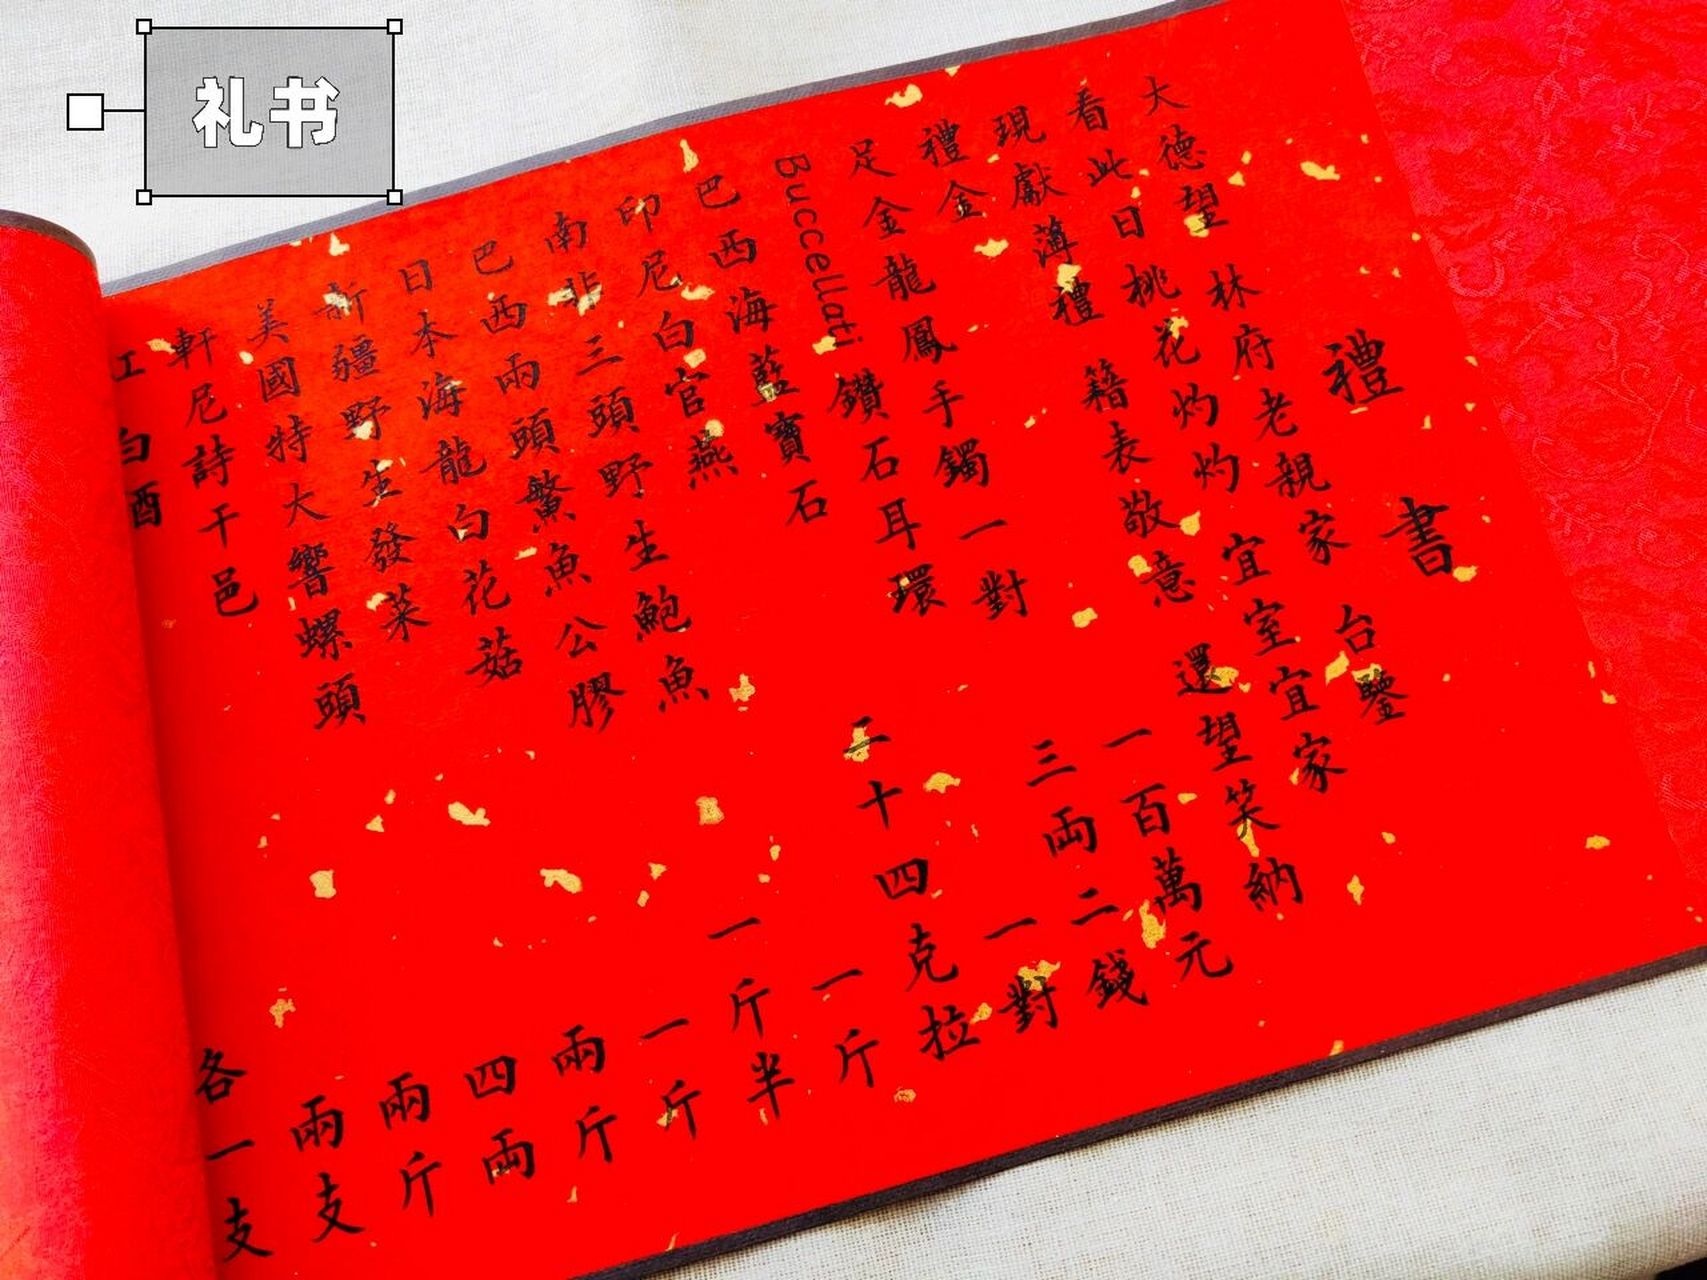 礼书
禮書
大德望 林府老親家 台鑒
看此日桃花灼灼 宜室宜家
現獻薄禮 籍表敬意 還望笑納
禮金 一百萬元
足金龍鳳手鐲一對 三両二錢
Buccellati 鑽石耳環 一對
巴西海藍寶石 二十四克拉
印尼白官燕 一斤
南非三頭野生鮑魚 一斤半
巴西兩頭鰵魚公膠 一斤
日本海龍白花菇 兩斤
新疆野生發菜 四両
美國特大響螺頭 兩斤
軒尼詩干邑 兩支
白酒 各一支